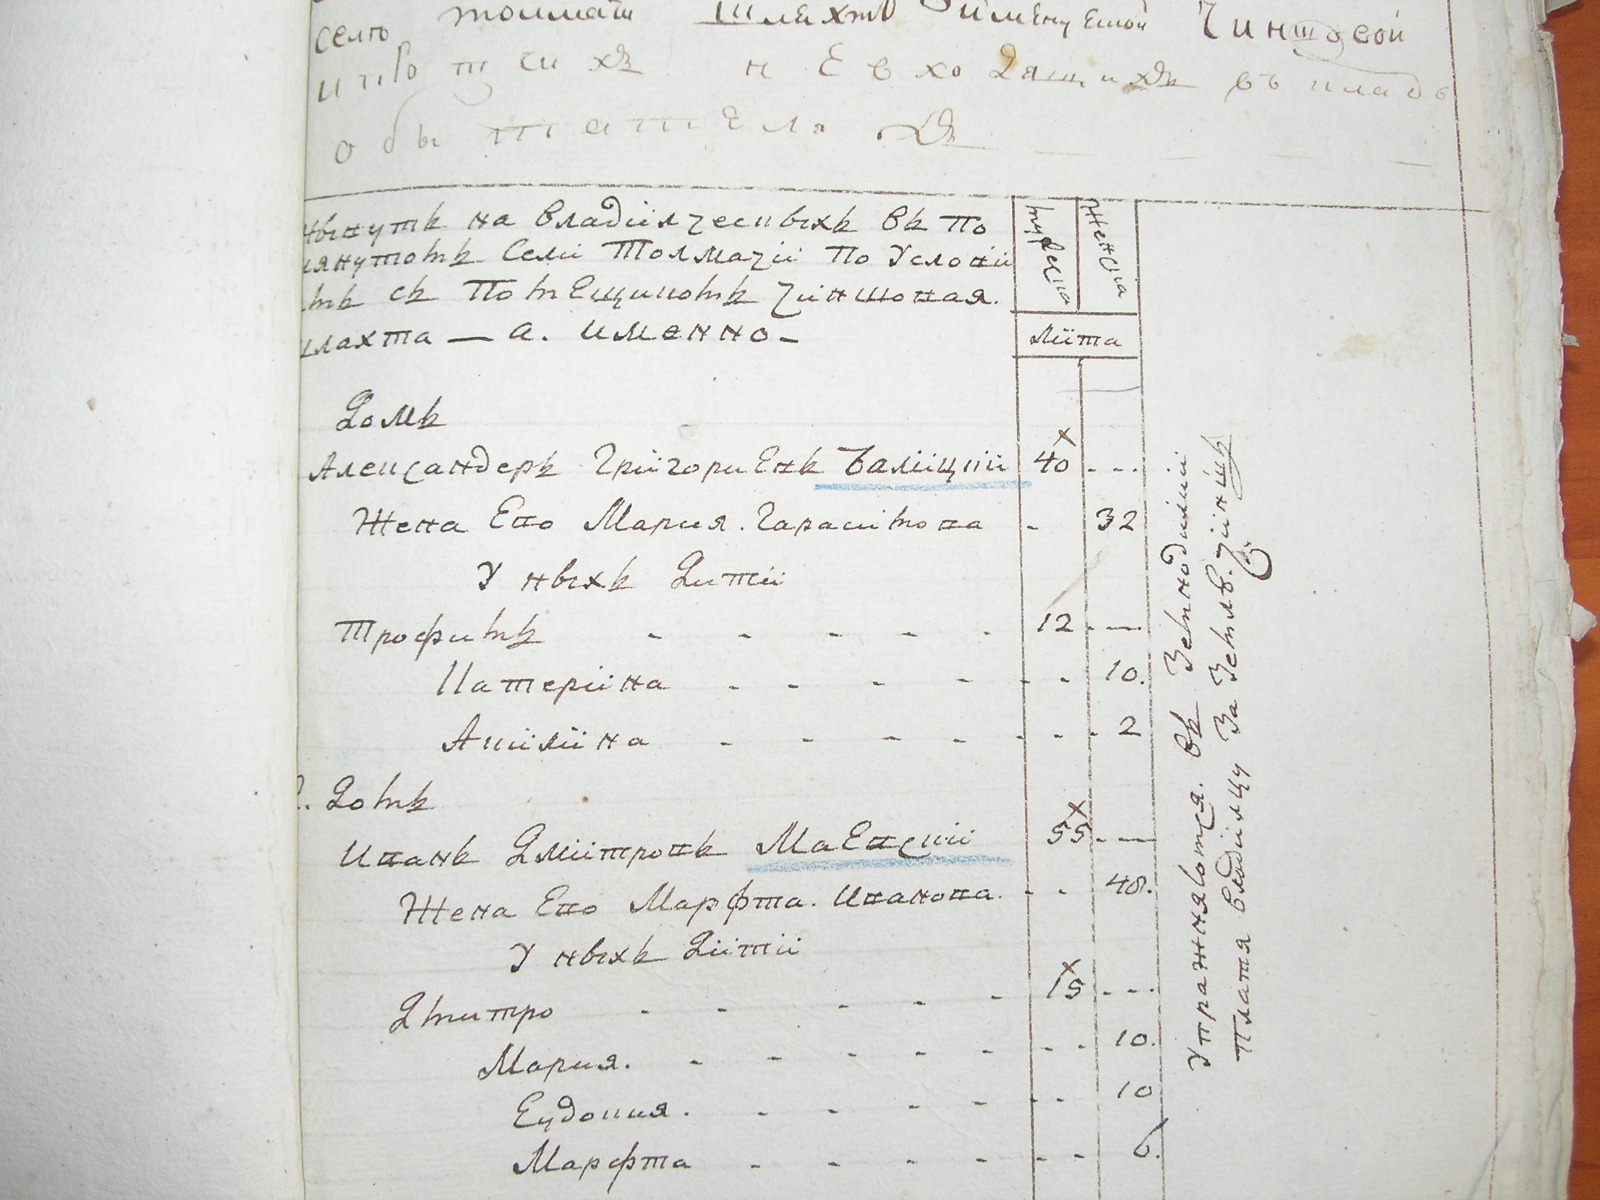 село Толмачи Шляхтъ Именуемой Чиншевой
и протчихъ не входящихъ въ кладъ
обытателяхъ
на владелческыхъ въ По
мянутомъ Селе Толмаче По Услови
мъ съ Помещикомъ Чиншовая
шлахта — а. именно —
мужеска
Женска
лета
Домъ
Александеръ Григориевъ Балицкий 40
Жена Ево Мария. Гарасимова 32
У ныхъ Дити
Трофимъ 12
Катерина 10.
Акилина 2
2. Домъ
Иванъ Дмитровъ Маевский 55
Жена Ево Марфта. Иванова. 48.
У ныхъ Дити
Дмитро 15
Мария. 10.
Евдокия. 10
Марфта 6.
Упражняются. въ Земноделии
Платя владелцу За Землю. Чиншъ